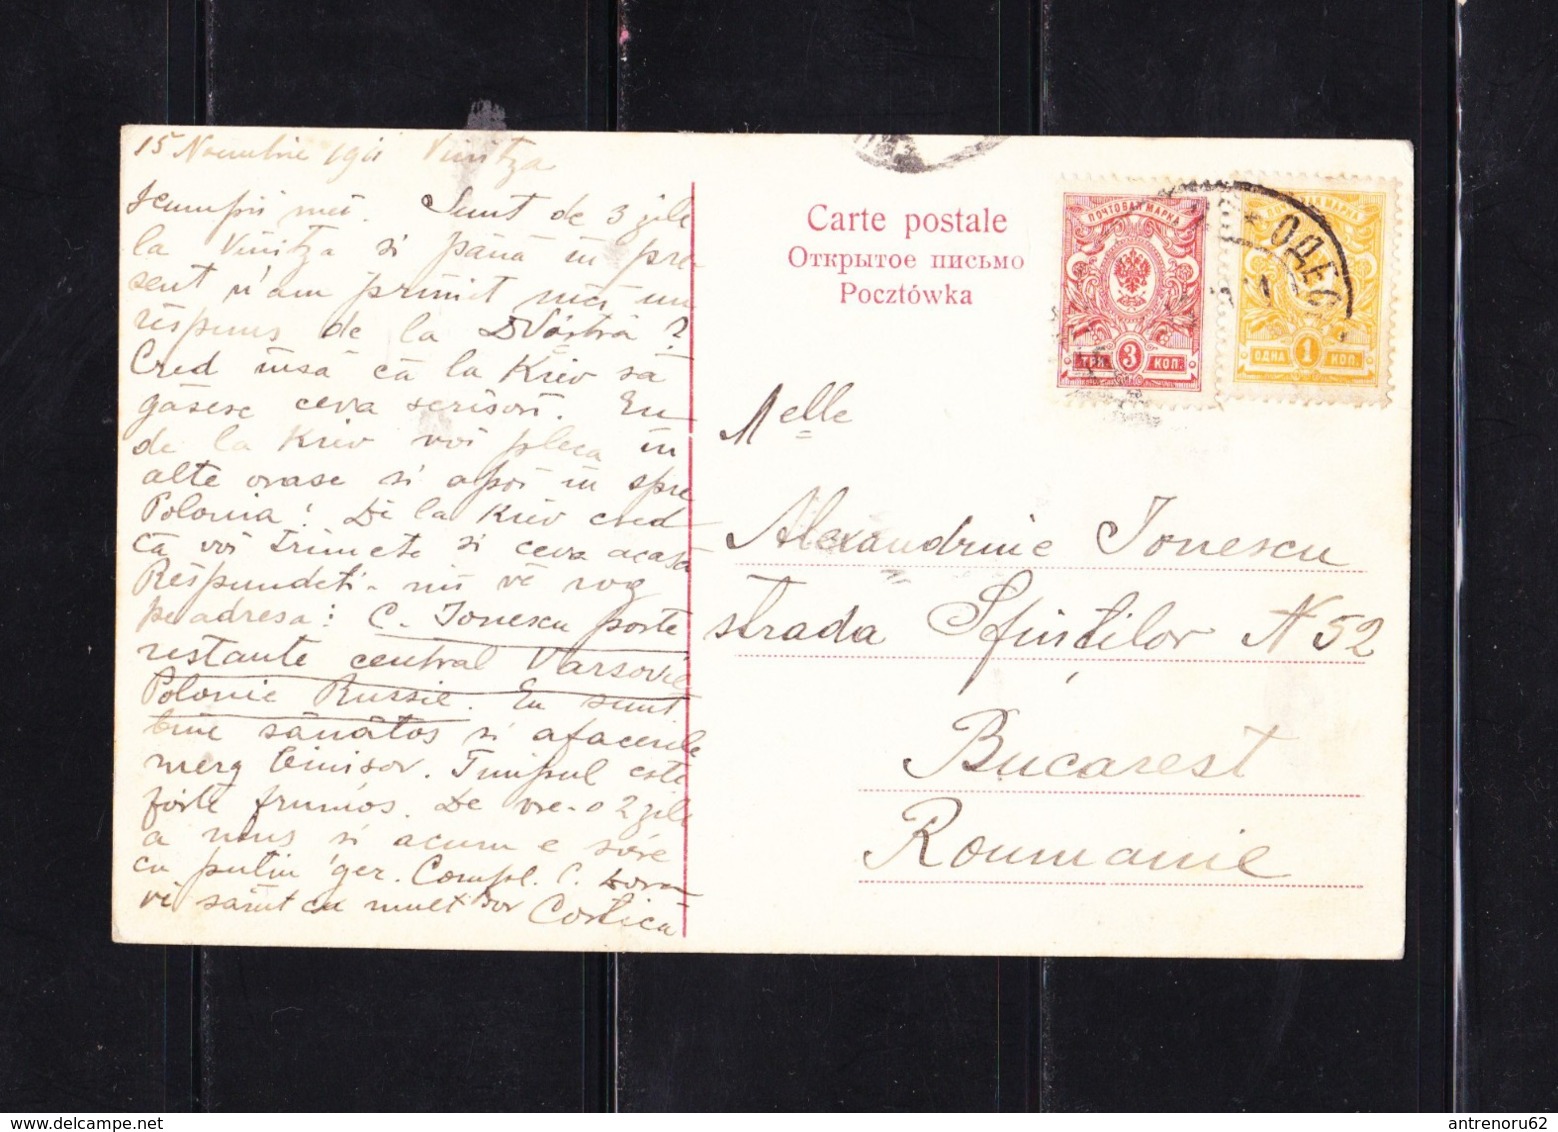 15 Noembrie 1911 Vinitza
Scumpii mei. Sunt de 3 zile
la Vinitza si pănă in pre
sent n'am primit nici un
respuns de la DVóstră?
Cred insă că la Kiev să
găsesc ceva scrisori. Eu
de la Kiev voi pleca in
alte orase si apoi in spre
Polonia! De la Kiev cred
că voi trimete si ceva acasă
Respundeti-mi vĕ rog
pe adresa: C. Ionescu poste
restante central Varsovie
Polonie Russie. Eu sunt
bine sănătos si afacerile
merg binisor. Timpul este
fórte frumos. De vre-o 2 zile
a nins si acum e sóre
cu putin ger. Compl. C.
vĕ sărut cu mult dor Costică
Carte postale
Открытое письмо
Pocztówka
ПОЧТОВАЯ МАРКА
ТРИ 3 КОП.
ОДНА 1 КОП.
ОДЕС
Melle
Alexandrine Ionescu
strada Sfinților N 52
Bucarest
Roumanie
antrenoru62